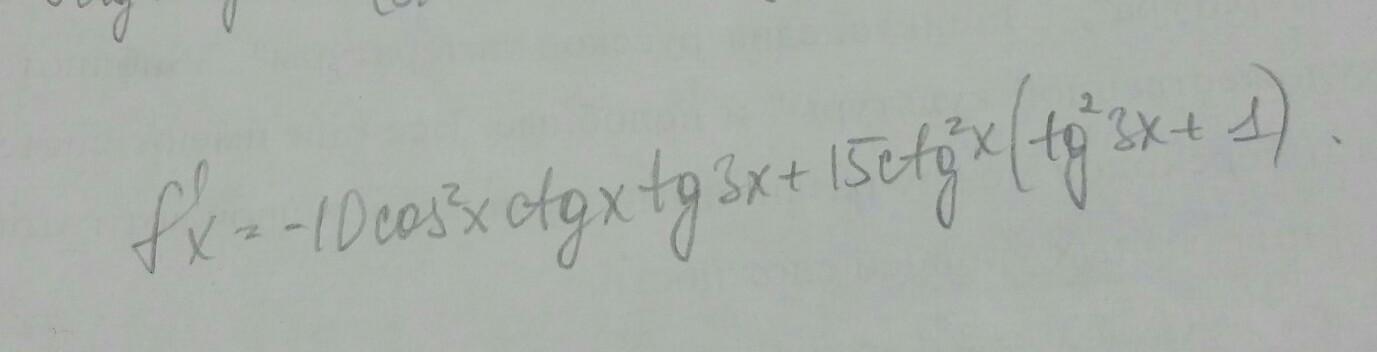 f'x = -10cos²x ctgx tg3x + 15ctg²x(tg²3x + 1).